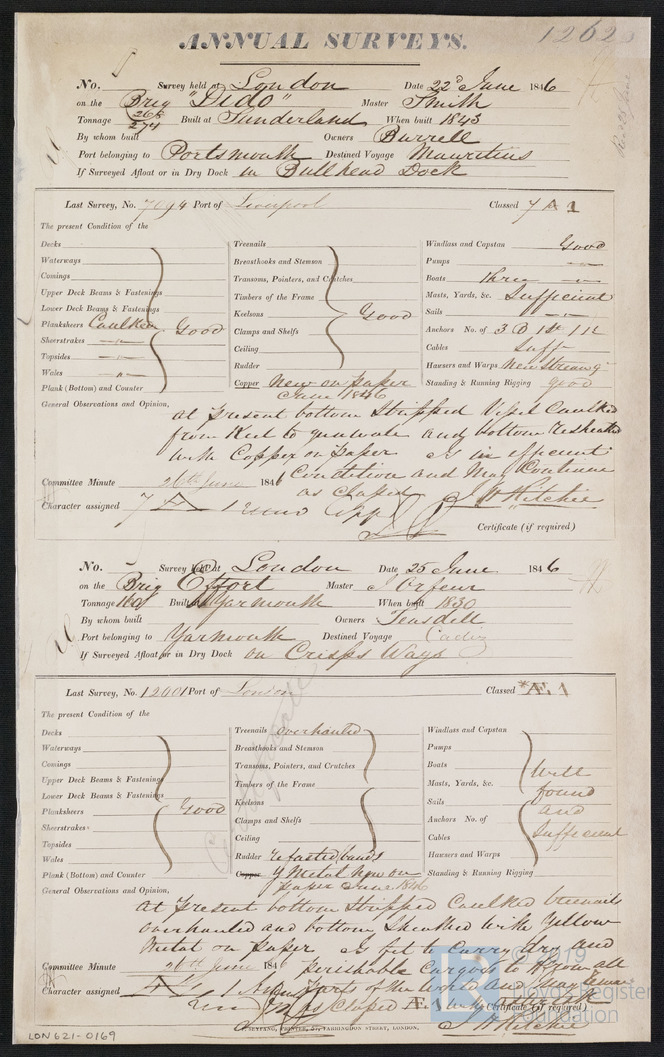 ANNUAL SURVEYS.
1262
No. Survey held at London Date 22d June 1846
on the Brig "Dido" Master Smith
Tonnage 265 274 Built at Sunderland When built 1843
By whom built Owners Burrell
Port belonging to Portsmouth Destined Voyage Mauritius
If Surveyed Afloat or in Dry Dock in Bullhead Dock
Last Survey, No. 7094 Port of Liverpool Classed 7 A 1
The present Condition of the
Decks
Waterways
Comings
Upper Deck Beams & Fastenings
Lower Deck Beams & Fastenings
Planksheers Caulked Good
Sheerstrakes "
Topsides "
Wales "
Plank (Bottom) and Counter
Treenails
Breasthooks and Stemson
Transoms, Pointers, and Crutches
Timbers of the Frame
Keelsons Good
Clamps and Shelfs
Ceiling
Rudder
Copper New on paper
June 1846
Windlass and Capstan Good
Pumps "
Boats three "
Masts, Yards, &c. Sufficient
Sails "
Anchors No. of 3 B 1 St 1 K
Cables Suff
Hawsers and Warps New Stream g
Standing & Running Rigging good
General Observations and Opinion,
At present bottom Stripped Vessel Caulked
from Keel to gunwale and bottom resheathed
with Copper on paper is in efficient
Condition and May Continue
as classed
Committee Minute 26th June 1846
Character assigned 7 A 1
Certificate (if required)
No. Survey held at London Date 25 June 1846
on the Brig Effort Master J Orfeur
Tonnage 160 Built at Yarmouth When built 1830
By whom built Owners Teasdell
Port belonging to Yarmouth Destined Voyage Cadiz
If Surveyed Afloat or in Dry Dock on Crisps Ways
Last Survey, No. 12001 Port of London Classed *Æ 1
The present Condition of the
Decks
Waterways
Comings
Upper Deck Beams & Fastenings
Lower Deck Beams & Fastenings
Planksheers Good
Sheerstrakes
Topsides
Wales
Plank (Bottom) and Counter
Treenails overhauled
Breasthooks and Stemson
Transoms, Pointers, and Crutches
Timbers of the Frame
Keelsons
Clamps and Shelfs
Ceiling
Rudder refasted bands
Copper Y Metal New on
paper June 1846
Windlass and Capstan
Pumps
Boats
Masts, Yards, &c.
Sails
Anchors No. of
Cables
Hawsers and Warps
Standing & Running Rigging
Well
found
and
Sufficient
General Observations and Opinion,
At present bottom Stripped Caulked treenails
overhauled and bottom Sheathed With Yellow
Metal on paper is fit to Carry dry and
perishable Cargoes to & from all
parts of the World and
as Classed Æ 1
Committee Minute 26th June 184
Character assigned
Certificate (if required)
PRINTER, FARRINGDON STREET, LONDON.
LON621-0169
© 2019
Lloyd's Register
Foundation